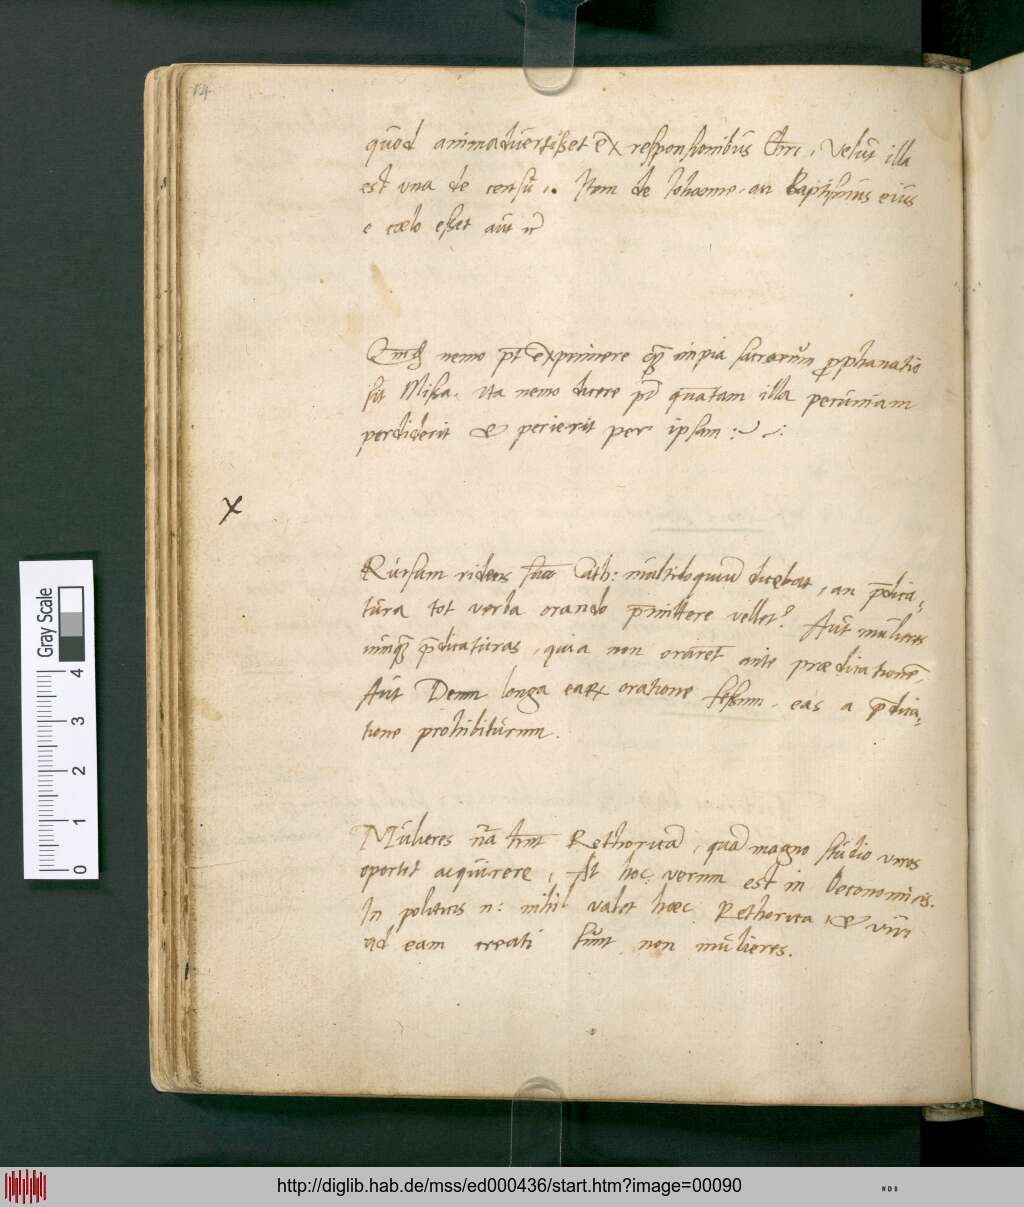 14
quod animadvertisset ex responsionibus Chri, velut illa
est una de censu,. Item de Iohanne, an Baptismus eius
e cœlo esset aut ñ
nemo pt exprimere impia sacrorum prophanatio
sit Missa, ita nemo dicere pt quatam illa pecuniam
perdiderit & perierit per ipsam :
x
Rursum ridens suæ Cath: multiloquium dicebat, an p̄dica-
tura tot verba orando p̄mittere vellet? Aut mulieres
nunq̄ p̄dicaturas, quia non orarēt ante prædicationē,
Aut Deum longa earum oratione fessum, eas a p̄dica-
tione prohibiturum.
Mulieres nāa hnt Rethoricā, quā magno studio viros
oportet acquirere, At hoc verum est in Oeconomicis.
In politicis n: nihil valet hæc Rethorica, & viri
ad eam creati sunt, non mulieres.
Gray Scale
0 1 2 3 4
http://diglib.hab.de/mss/ed000436/start.htm?image=00090